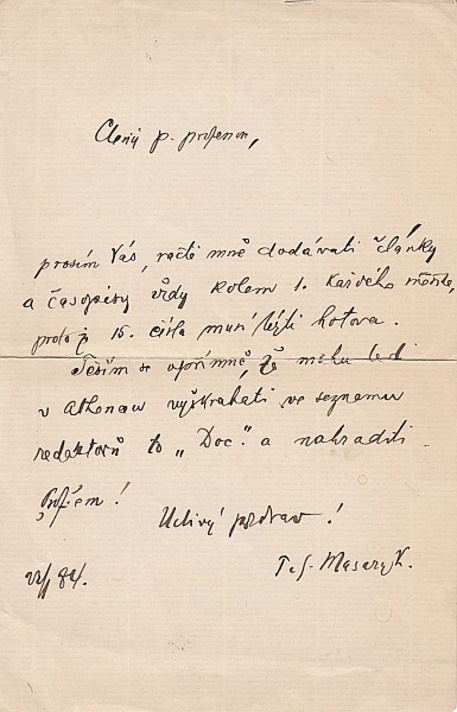 Ctěný p. profesore,
prosím Vás, račte mně dodávati články
a časopisy vždy kolem 1. každého měsíce,
proto ž 15. čísla musí býti hotova.
Těším se upřímně, že mohu teď
v Athenaeu vyškrabati ve seznamu
redaktorů to „Doc." a nahraditi
Prof-em!
Uctivý pozdrav!
T. G. Masaryk.
84.